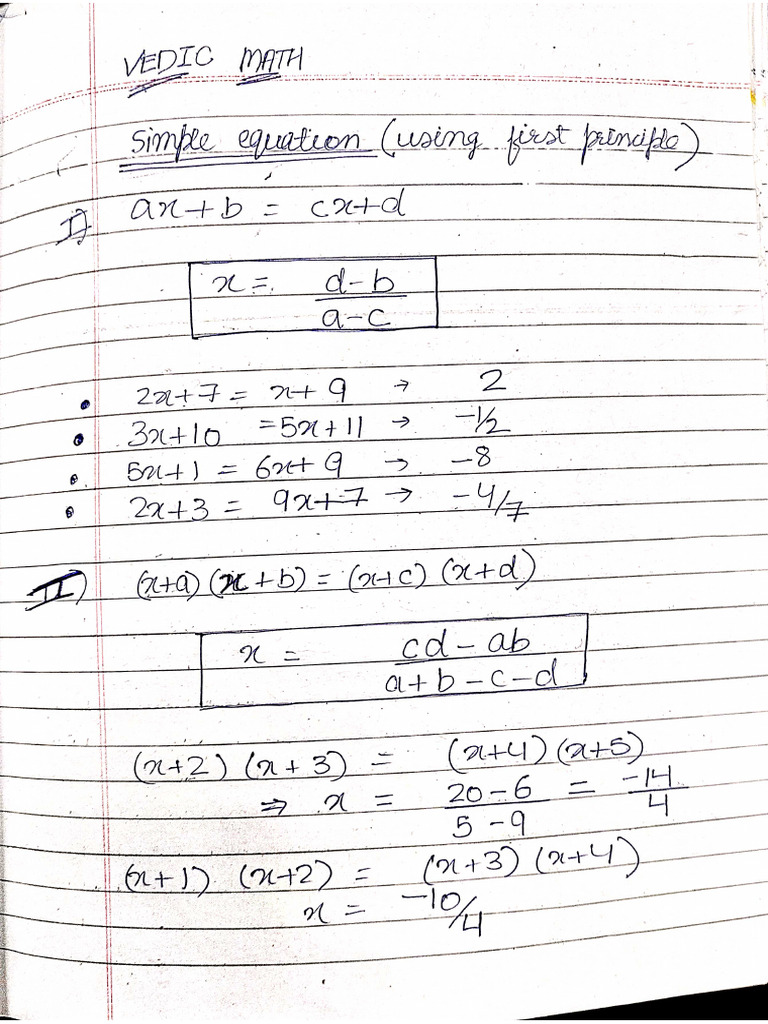 VEDIC MATH
Simple equation (using first principle)
I) ax+b = cx+d
x = d-b
a-c
• 2x+7 = x+9 → 2
• 3x+10 = 5x+11 → -1/2
• 5x+1 = 6x+9 → -8
• 2x+3 = 9x+7 → -4/7
II) (x+a) (x+b) = (x+c) (x+d)
x = cd-ab
a+b-c-d
(x+2) (x+3) = (x+4) (x+5)
⇒ x = 20-6 = -14
5-9 4
(x+1) (x+2) = (x+3) (x+4)
x = -10/4